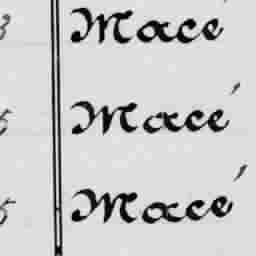 3 Macé
5 Macé
5 Macé